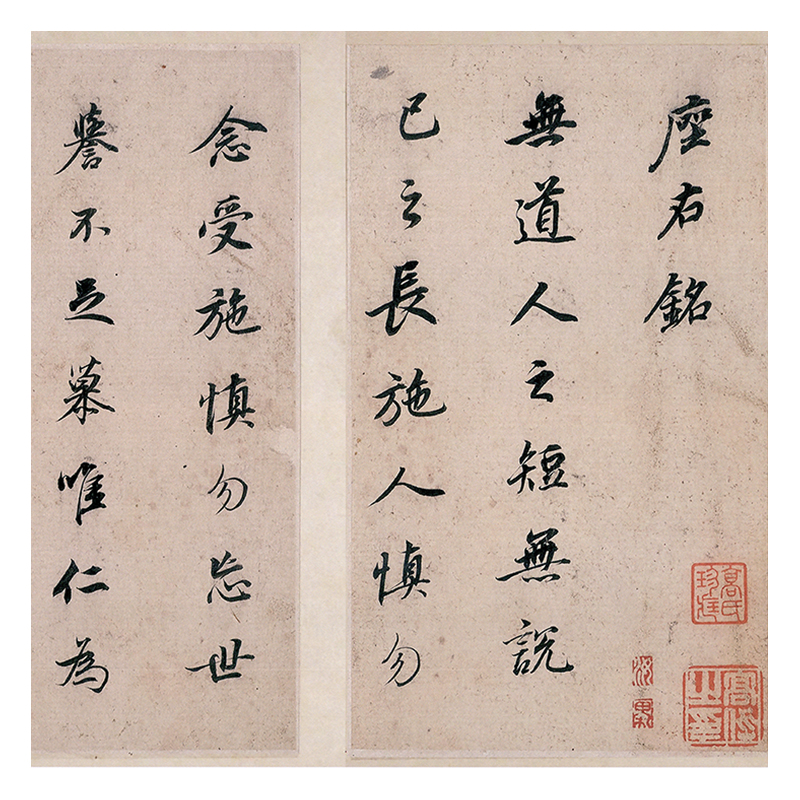 座右銘
無道人之短無說
己之長施人慎勿
念受施慎勿忘世
譽不足慕唯仁為